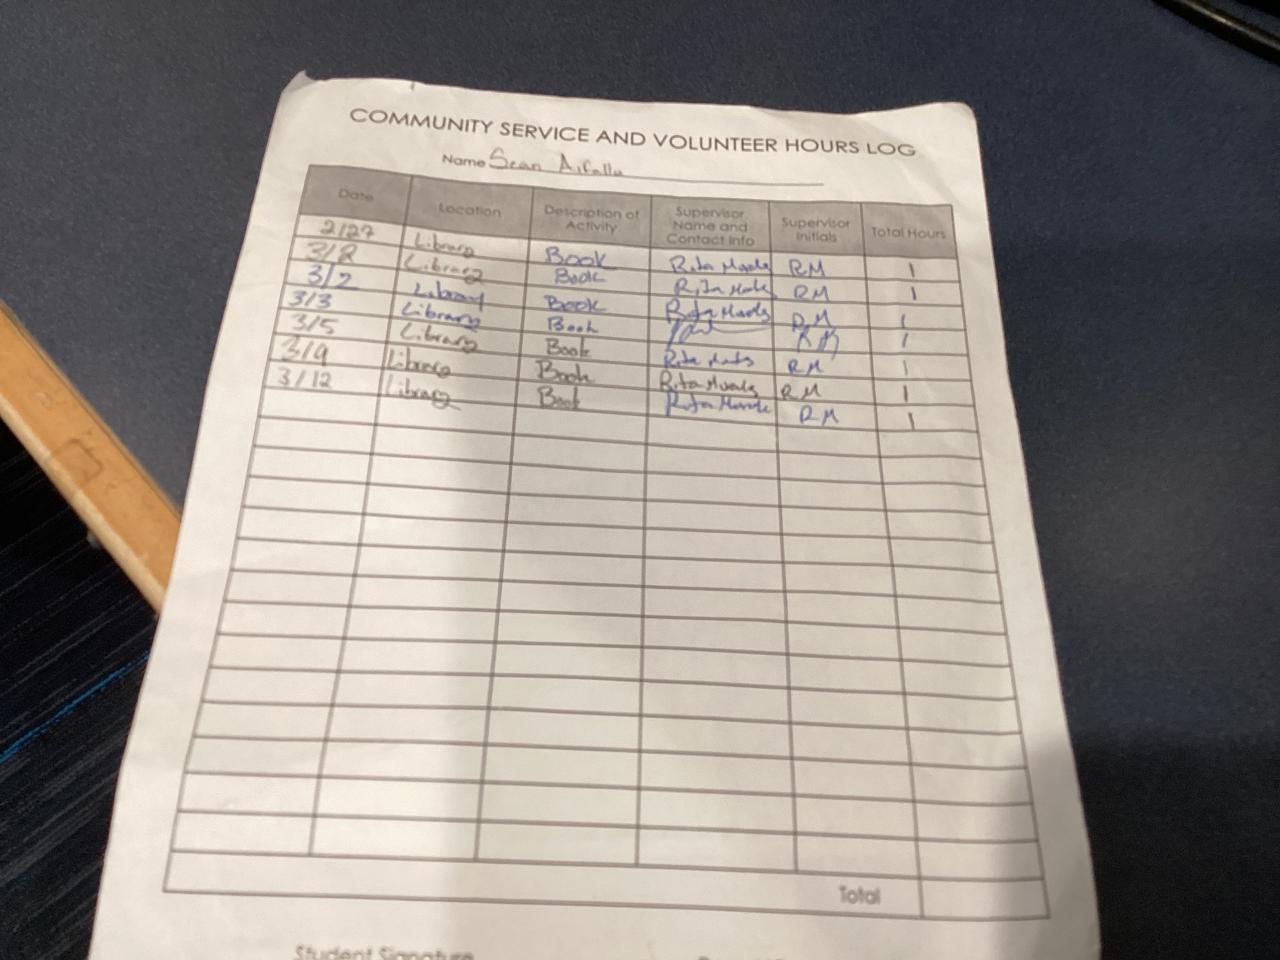 COMMUNITY SERVICE AND VOLUNTEER HOURS LOG
Name Sean
Date Location Description of Activity Supervisor Name and Contact Info Supervisor Initials Total Hours
2/27 Library Book Rita RM 1
3/2 Library Book Rita RM 1
3/2 Library Book Rita RM 1
3/3 Library Book RM 1
3/5 Library Book Rita RM 1
3/9 Library Book Rita RM 1
3/12 Library Book Rita RM 1
Total
Student Signature